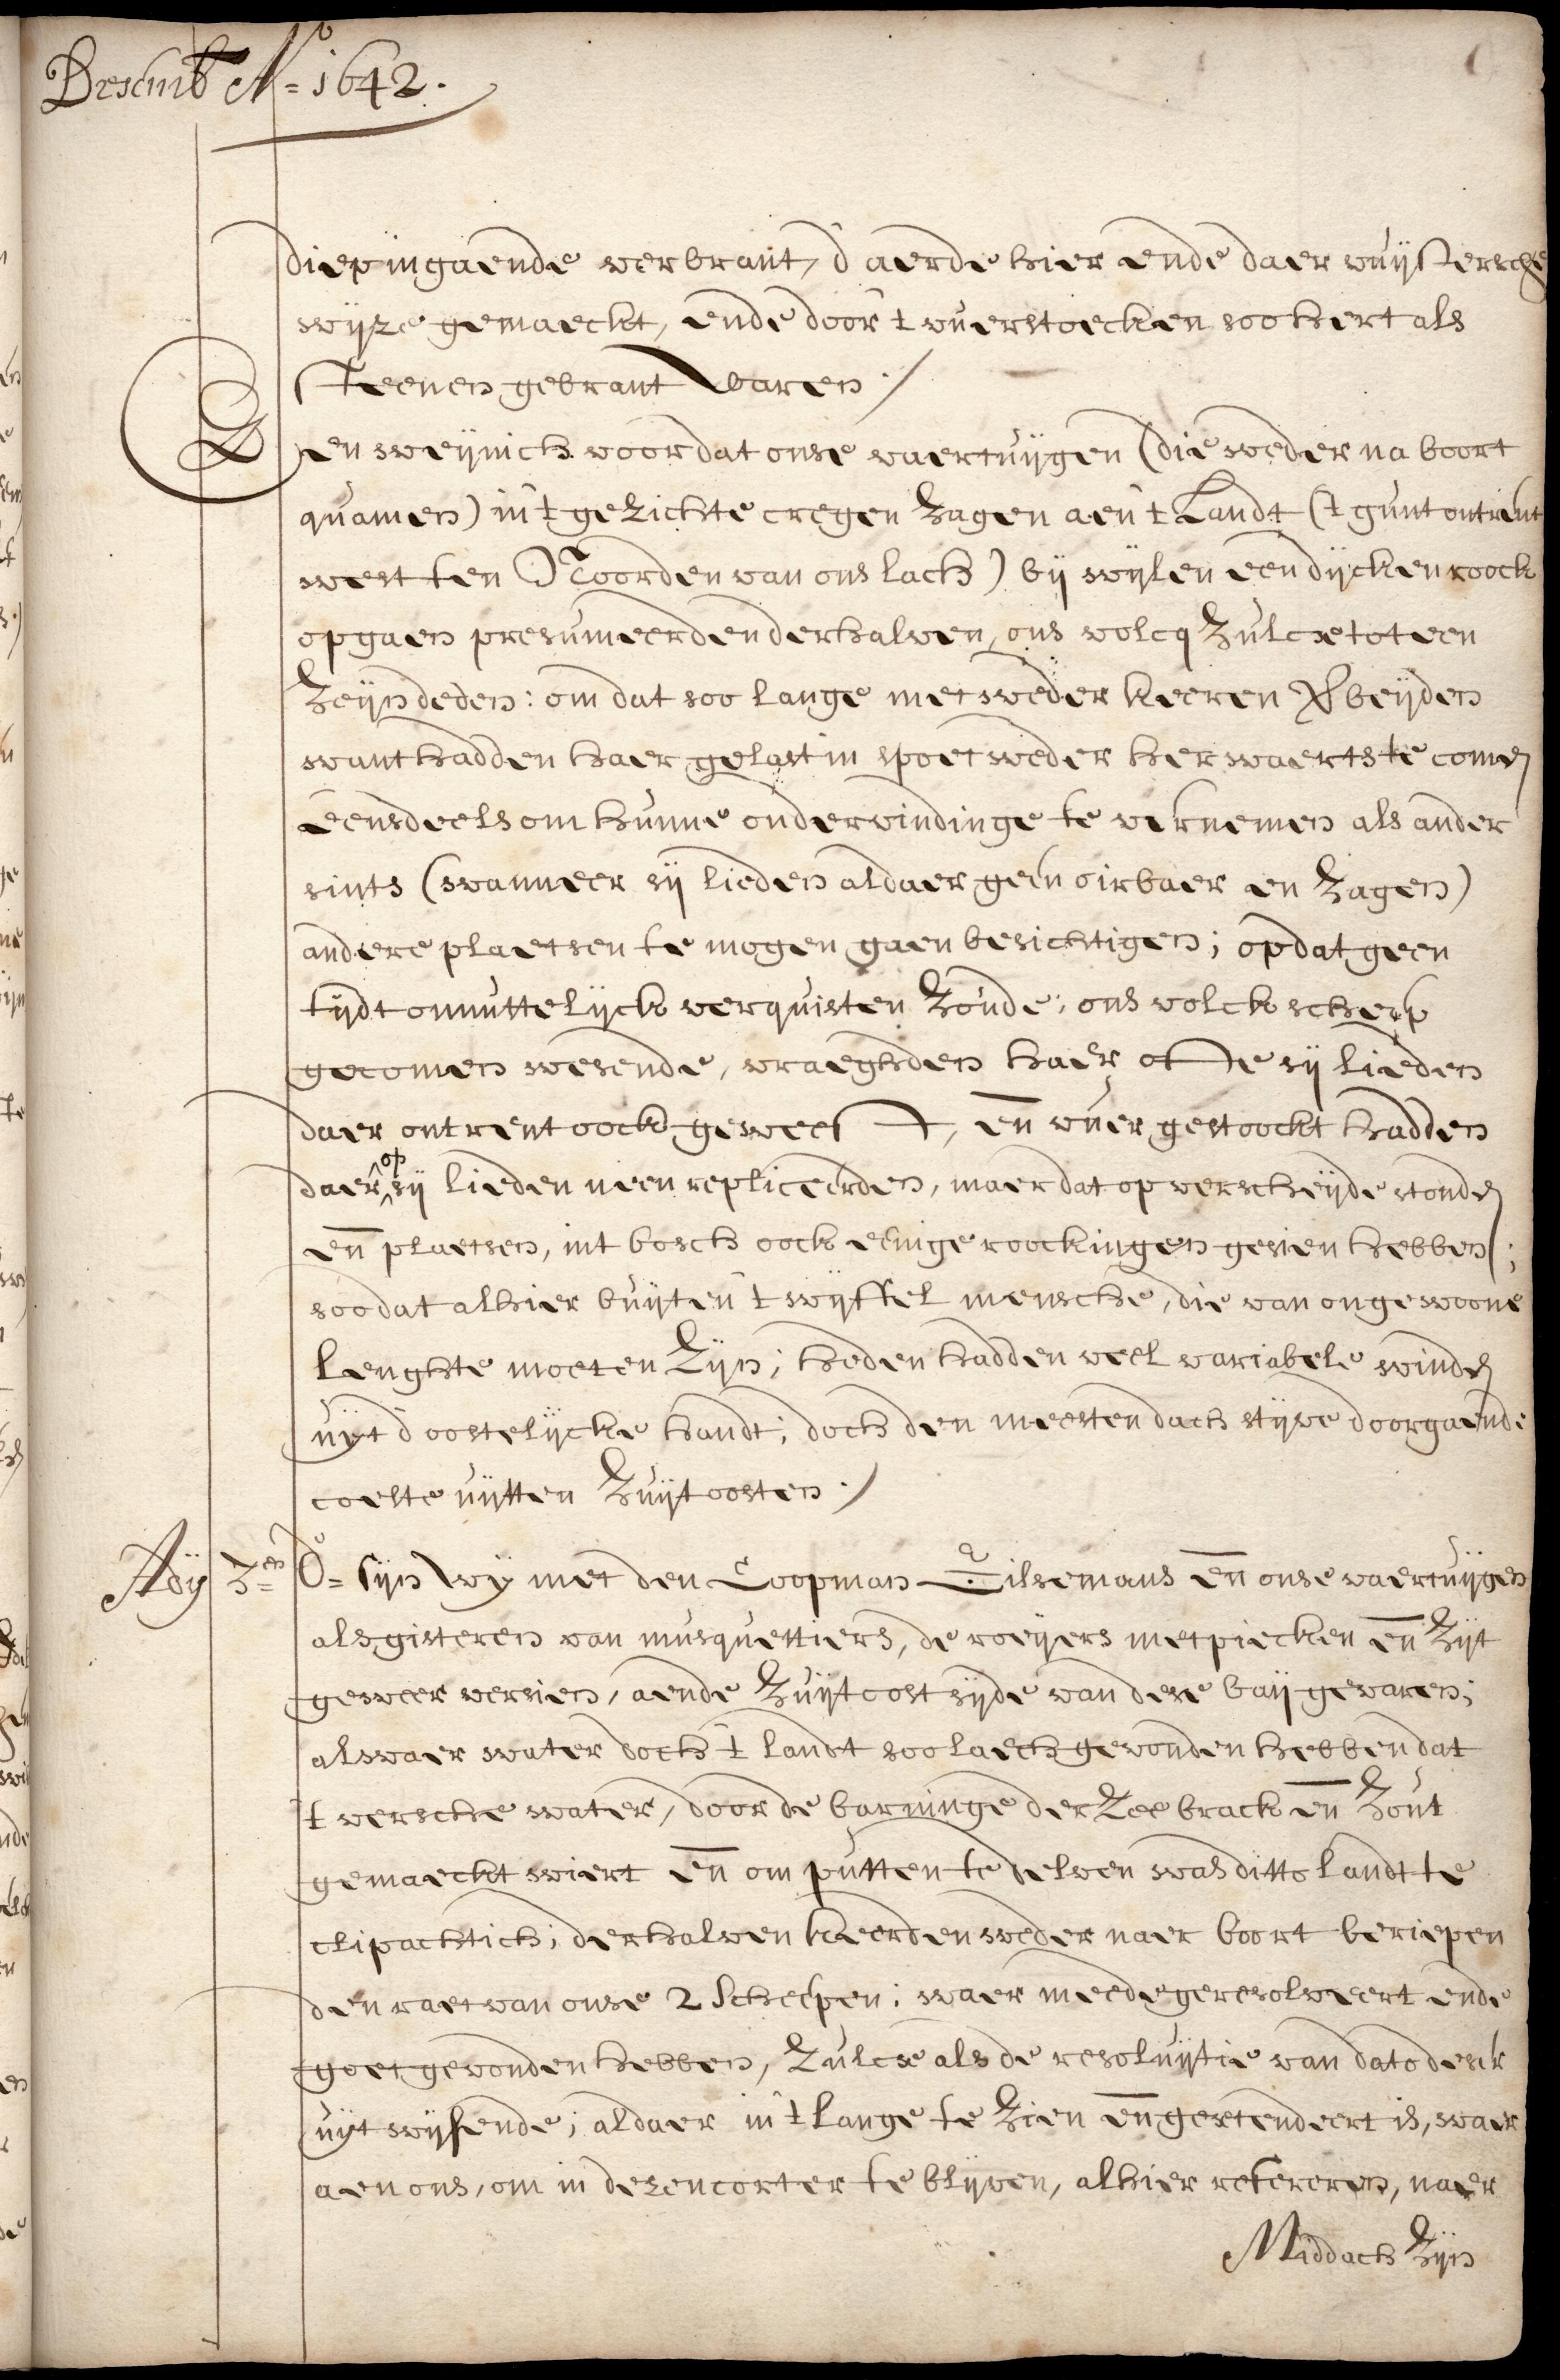 Decemb A:o 1642.
diep ingaende verbrant, d'aerde hier ende daer vuijstersche
wijze gemaeckt, ende door 't vuerstoecken soo hert als
steenen gebrant waren ./
Een weijnich voor dat onse vaertuijgen (die weder na boort
quamen) in 't gezichte cregen zagen aen 't Landt ('t gunt ontrent
west ten Noorden van ons lach) bij wijlen een dijcken roock
opgaen presumeerden derhalven, ons volcq zulcx tot een
zeijn deden: om dat soo lange met weder keeren verbeijden
want hadden haer gelast in spoet weder herwaerts te comen
eensdeels om hunne ondervindinge te vernemen als ander
sints (wanneer sij lieden aldaer geen oirbaer en zagen)
andere plaetsen te mogen gaen besichtigen; opdat geen
tijdt onnuttelijck verquisten zoude; ons volck scheep
gecomen wesende, vraeghden haer ofte sij lieden
daer ontrent oock geweest, en vuer gestoockt hadden
daer op sij lieden neen repliceerden, maer dat op verscheijde stonden
en plaetsen, int bosch oock eenige roockingen gesien hebben;
soodat alhier buijten 't wijffel mensche, die van ongewoone
lenghte moeten zijn; heden hadden veel variabele winden
uijt d'oostelijcke handt; doch den meesten dach stijve doorgaende
coelte uijtten zuijtoosten ./
Adij 3en do= sijn wij met den Coopman Gilsemans en onse vaertuijgen
als gisteren van musquettiers, de roeijers met piecken en zijt
geweer versien, aende zuijtoostsijde van dese baij gevaren;
alwaer water doch 't landt soo laech gevonden hebben dat
't versche water, door de barninge der zee brack en zout
gemaeckt wiert en om putten te delven was ditto landt te
clipachtich; derhalven keerden weder naer boort beriepen
den raet van onse 2 scheepen; waer meede geresolveert ende
goet gevonden hebben, zulcx als de resoluijtie van dato deser
uijtwijsende; aldaer in 't lange te zien en geextendeert is, waer
aen ons, om in desen corter te blijven, alhier refereren, naer
Middach zijn